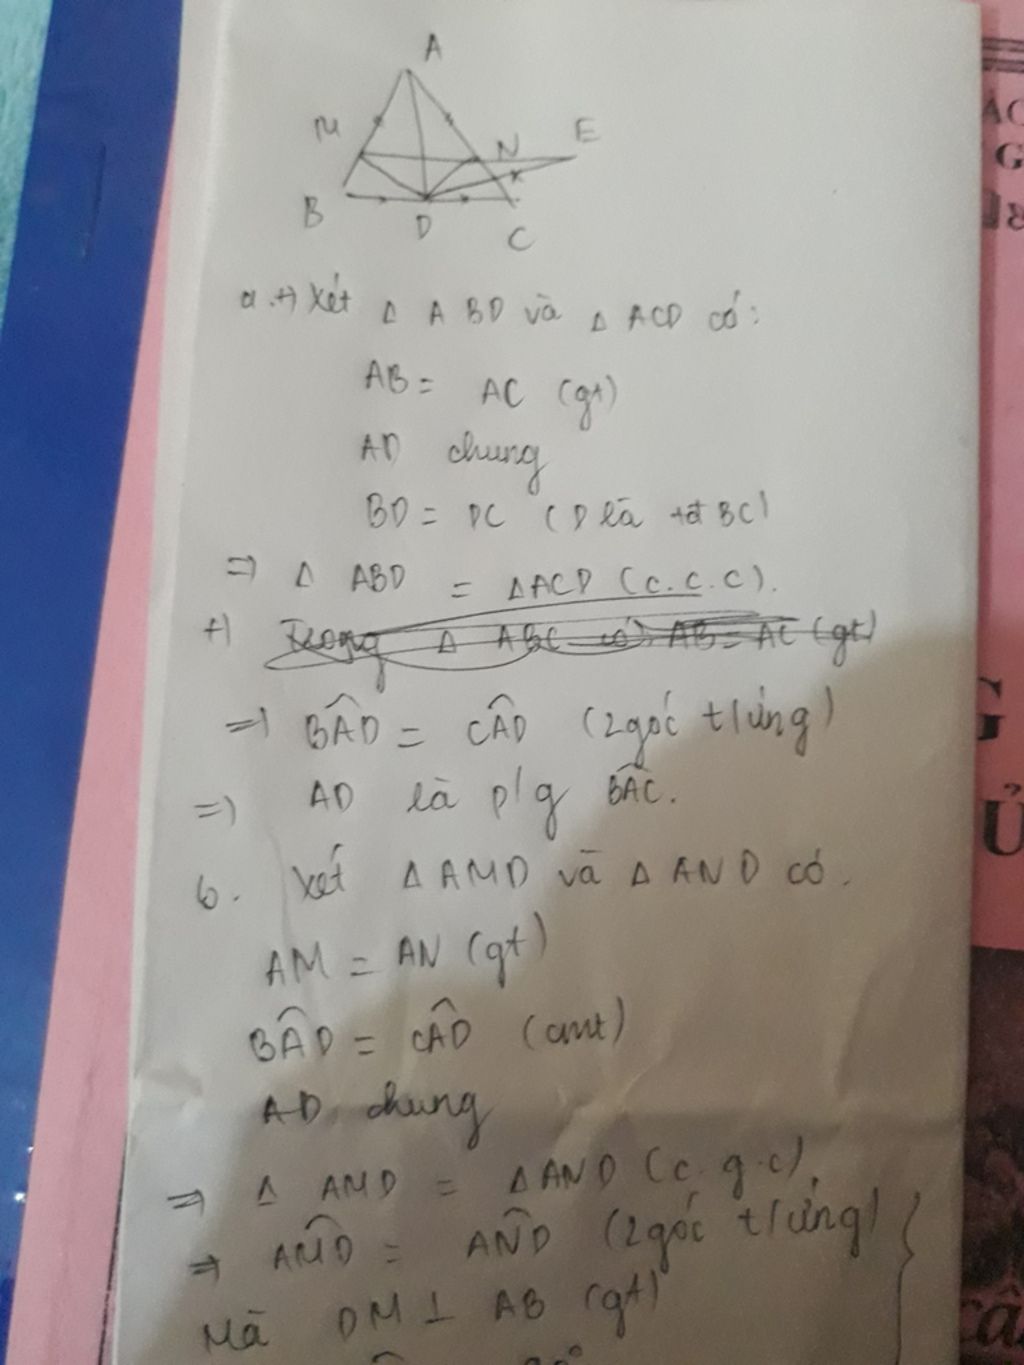 A
M
N
E
B
D
C
a. +) Xét Δ ABD và Δ ACD có:
AB = AC (gt)
AD chung
BD = DC (D là tđ BC)
=> Δ ABD = Δ ACD (c.c.c).
+) Trong Δ ABC có AB = AC (gt)
=> BÂD = CÂD (2 góc t/ứng)
=> AD là p/g BÂC.
b. Xét Δ AMD và Δ AND có.
AM = AN (gt)
BÂD = CÂD (cmt)
AD chung
=> Δ AMD = Δ AND (c.g.c).
=> AM̂D = AN̂D (2 góc t/ứng)
Mà DM ⊥ AB (gt)
G
G
Ử